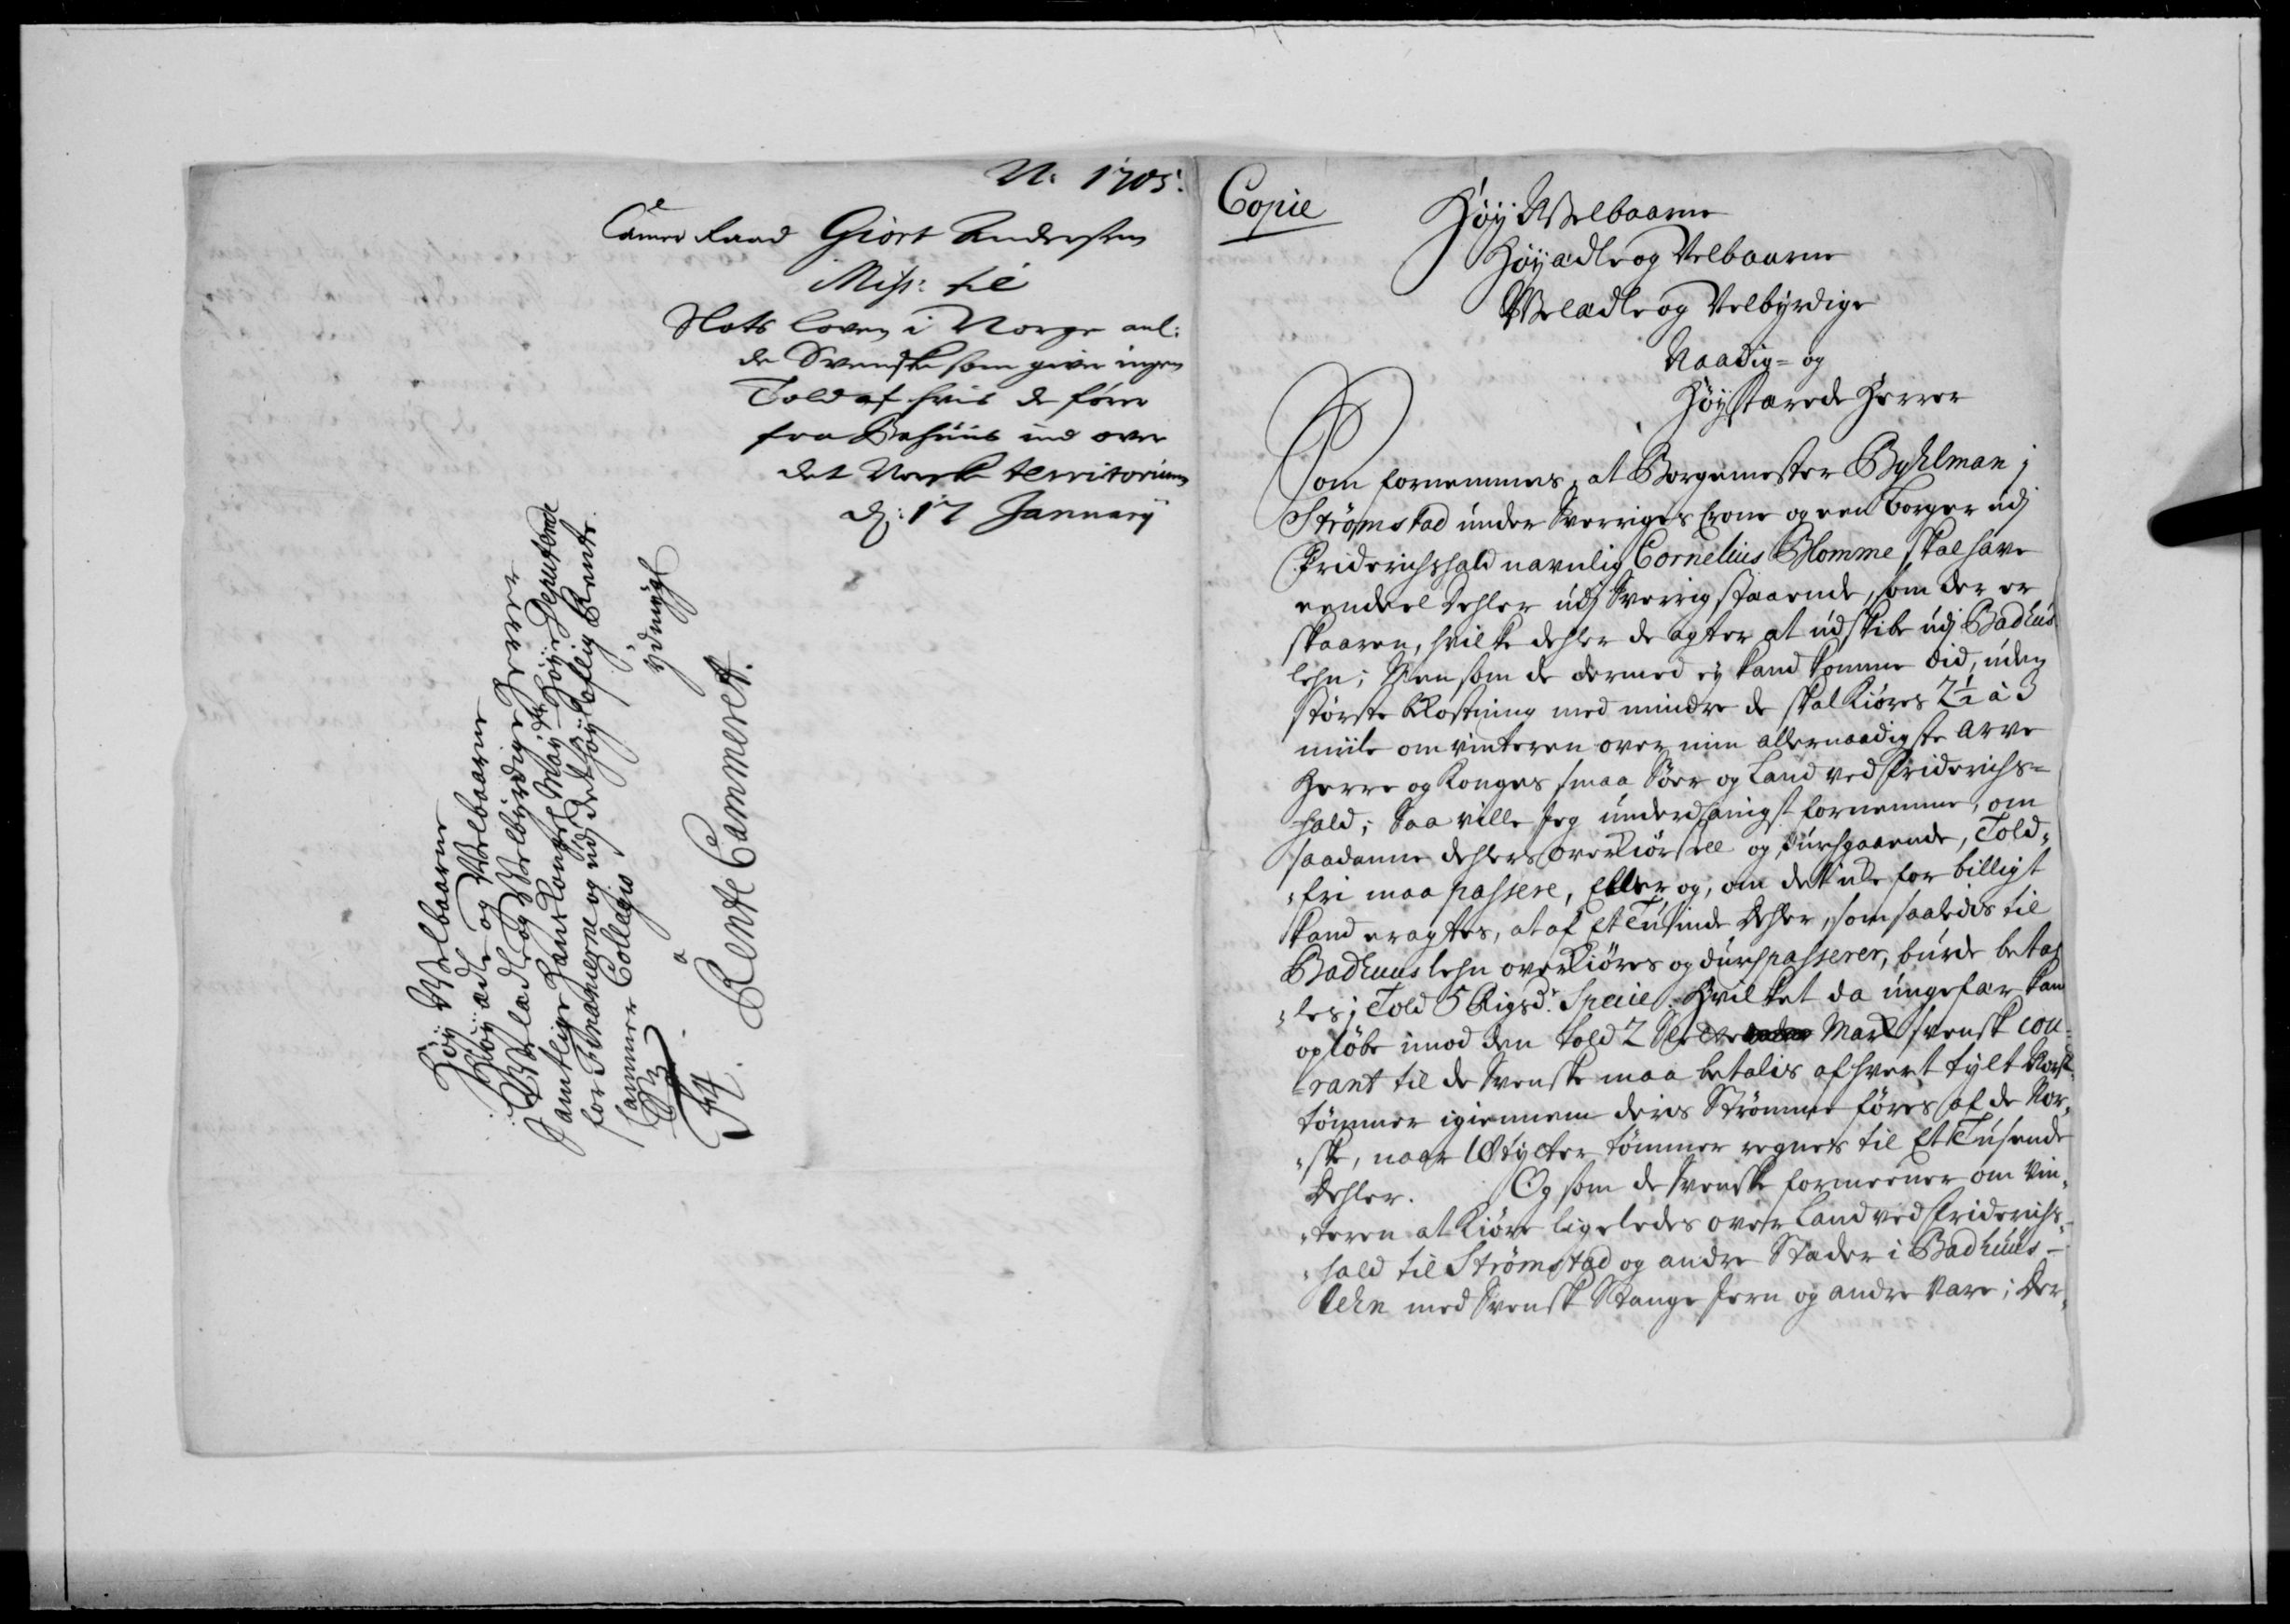 N. 1705.
Camer Raad Giort Andersen
Miss: til
Slots loven i Norge anl:
de Svenske som giver ingen
Told af hvis de fører
fra Bahuus ind over
det Norske territorium
d: 17 January
Høy Welbaarne
Høyædle og Welbaarne
Welædle og Velbyrdige Herrer
Samtlige Hans Kongl. Mayts Høye Deputerede
for Finanzerne og udj det høyloflig Rente
Cammer Collegio ydmygl
a
Rente Cammeret.
Copie
Høy Welbaarne
Høyædle og Velbaarne
Welædle og Velbyrdige
Naadig= og
Høystærede Herrer
Som fornemmes, at Borgemester Byhlman j
Strømstad under Sverriges Crone og een borger udj
Friderichshald navnlig Cornelius Blomme skal have
eendeel dehler udj Sverrig staaende, som der er
skaaren, hvilke dehler de agter at udskibe udj Badhus
lehn; Men som de dermed ey kand komme did, uden
største Kostning med mindre de skal kiøres 2½ à 3
miile om vinteren over min allernaadigste Arve
Herre og Konges smaa Søer og Land ved Friderichs=
hald; Saa ville jeg underdanigst fornemme, om
saadanne dehlers overkiørsell og durchgaaende, Told=
fri maa passere, Eller og, om det icke for billigt
kand eragtes, at af Et Tusinde Dehler, som saaledes til
Badhuus lehn overkiøres og durchpasserer, burde beta=
les j Told 5 Rigsdr. Specie. Hvilket da ungefær kan
opløbe imod den told 2 Mark svensk cou=
rant til de Svenske maa betalis af hvert tylt Norsk
tømmer igiennem deris Strømme føres af de Nor=
ske, naar 10 tylter tømmer regnes til Et Tusende
Dehler. Og som de Svenske formeener om Vin=
teren at kiøre ligeledes over Land ved Friderichs=
hald til Strømstad og andre Stæder i Badhuus=
lehn med Svensk Stange Jern og andre Vare; Der=